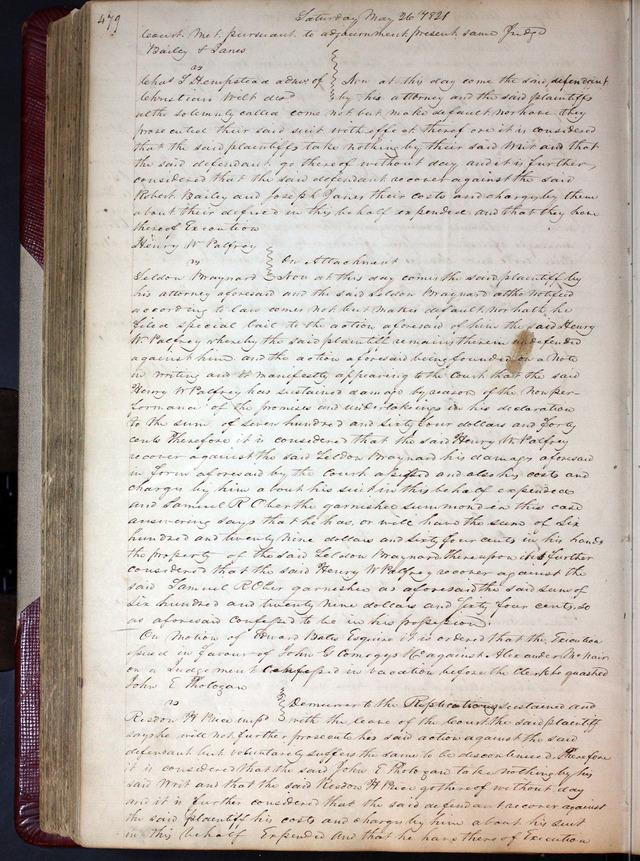 479
Saturday May 26 1821
Court Met pursuant to adjournment present same Judge
Bailey & Janes
vs
Chas S Hempstead admr of Now at this day come the said defendant
Christian Wilt decd by his attorney and the said plaintiffs
altho solemnly called come not but make default nor have they
prosecuted their said suit with effect therefore it is considered
that the said plaintiffs take nothing by their said Writ and that
the said defendant go thereof without day and it is further
considered that the said defendant recover against the said
Robert Bailey and Joseph Janes their costs and charges by them
about their defence in this behalf expended and that they have
thereof Execution
Henry W Palfrey
vs On Attachment
Seldon Braynard Now at this day comes the said plaintiff by
his attorney aforesaid and the said Seldon Braynard altho notified
according to law comes not but makes default nor hath he
filed special bail to the action aforesaid of him the said Henry
W Palfrey whereby the said plaintiff remains therein undefended
against him and the action aforesaid being founded on a Note
in writing and it manifestly appearing to the Court that the said
Henry W Palfrey has sustained damage by reason of the Nonper-
formance of the promises and undertakings in his declaration
to the sum of seven hundred and sixty four dollars and forty
cents Therefore it is considered that the said Henry W Palfrey
recover against the said Seldon Braynard his damages aforesaid
in form aforesaid by the Court assessed and also his costs and
charges by him about his suit in this behalf expended
and Samuel R Ober the garnishee summoned in this case
answering says that he has or will have the sum of Six
hundred and twenty nine dollars and sixty four cents in his hands
the property of the said Seldon Braynard thereupon it is further
considered that the said Henry W Palfrey recover against the
said Samuel R Ober garnishee as aforesaid the said sum of
Six hundred and twenty Nine dollars and sixty four cents, so
as aforesaid confessed to be in his possession
On Motion of Edward Bates Esquire it is ordered that the Execution
issued in favour of John G Comegys against Alexander McNair
on a Judgement confessed in vacation before the Clerk be quashed
John E Tholozan
vs Demurrer to the Replications sustained and
Resdon H Price with the leave of the Court the said plaintiff
says he will not further prosecute his said action against the said
defendant but voluntarily suffers the same to be discontinued Therefore
it is considered that the said John E Tholozan take nothing by his
said Writ and that the said Resdon H Price go thereof without day
and it is further considered that the said defendant recover against
the said plaintiff his costs and charges by him about his suit
in this behalf Expended and that he have thereof Execution